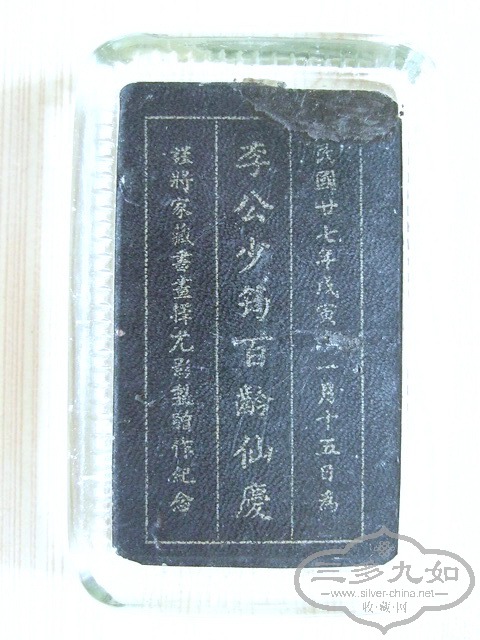 民國廿七年戊寅一月十五日為
李公少鹤百齡仙慶
謹將家藏書畫擇尤影製頒作紀念
三多九如
www.silver-china.net
收·藏·网